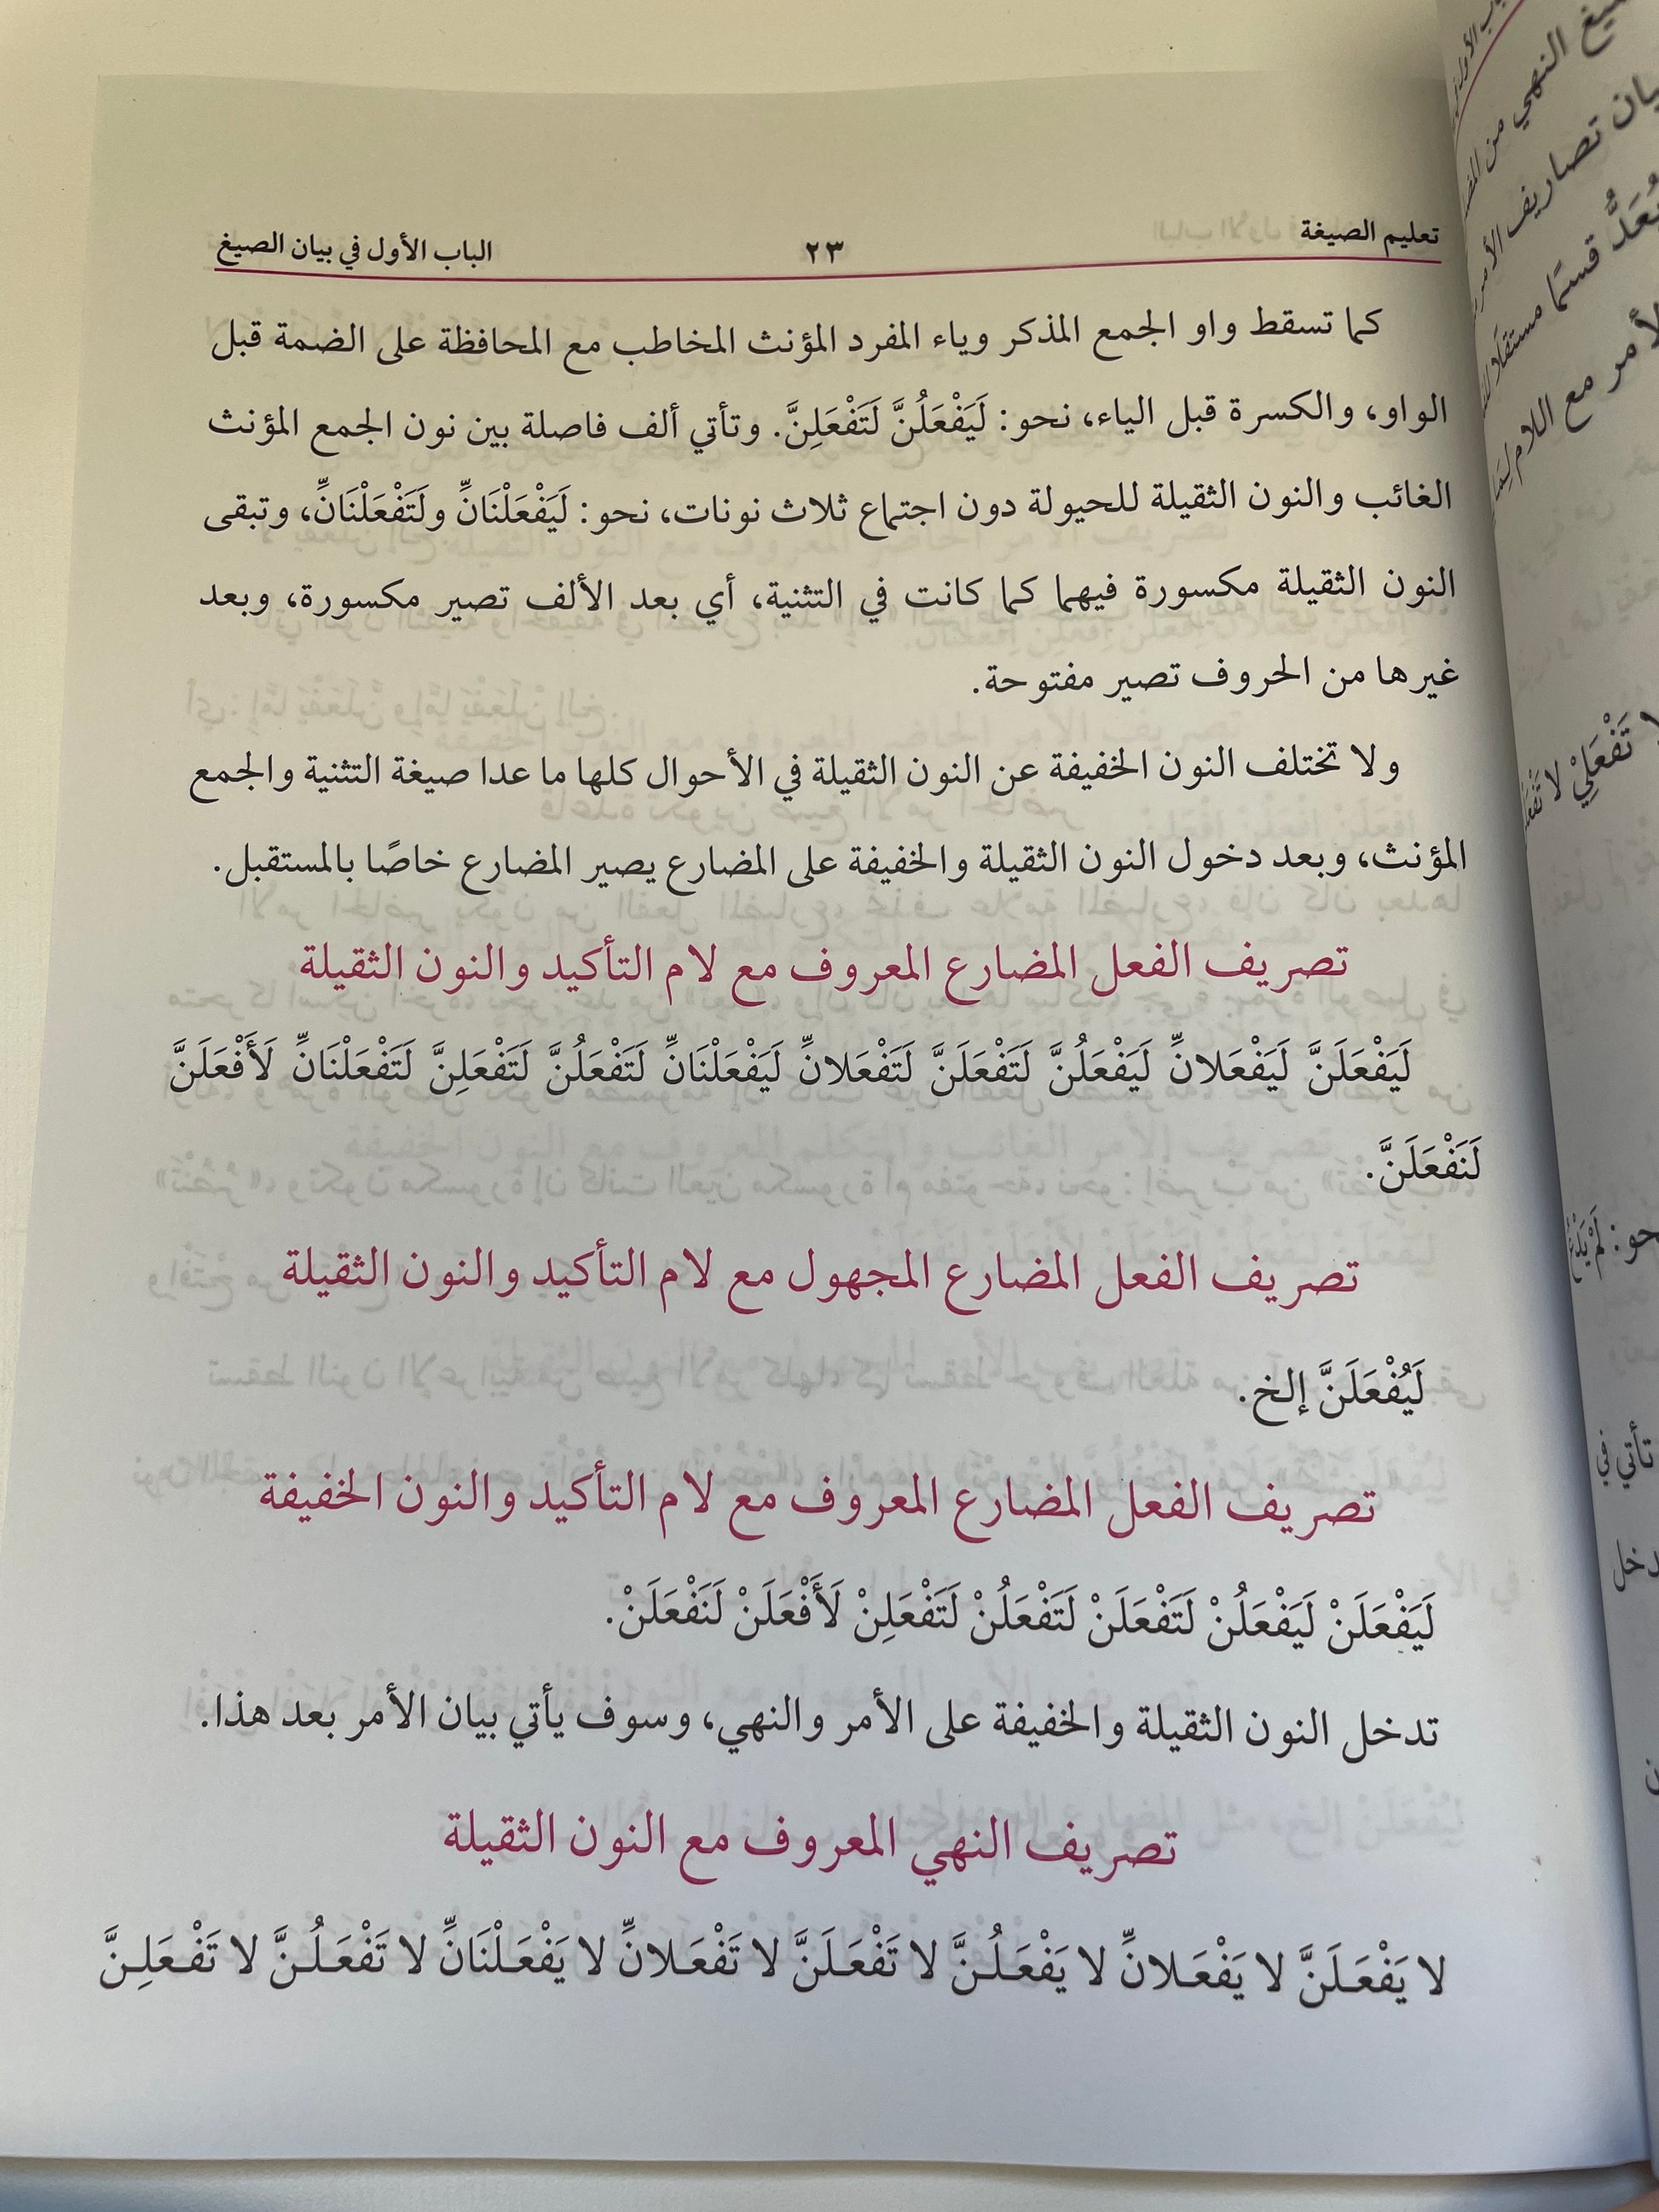 تعليم الصيغة ٢٣ الباب الأول في بيان الصيغ
كما تسقط واو الجمع المذكر وياء المفرد المؤنث المخاطب مع المحافظة على الضمة قبل
الواو، والكسرة قبل الياء، نحو: لَيَفْعَلُنَّ لَتَفْعَلِنَّ. وتأتي ألف فاصلة بين نون الجمع المؤنث
الغائب والنون الثقيلة للحيولة دون اجتماع ثلاث نونات، نحو: لَيَفْعَلْنَانِّ ولَتَفْعَلْنَانِّ، وتبقى
النون الثقيلة مكسورة فيهما كما كانت في التثنية، أي بعد الألف تصير مكسورة، وبعد
غيرها من الحروف تصير مفتوحة.
ولا تختلف النون الخفيفة عن النون الثقيلة في الأحوال كلها ما عدا صيغة التثنية والجمع
المؤنث، وبعد دخول النون الثقيلة والخفيفة على المضارع يصير المضارع خاصًا بالمستقبل.
تصريف الفعل المضارع المعروف مع لام التأكيد والنون الثقيلة
لَيَفْعَلَنَّ لَيَفْعَلانِّ لَيَفْعَلُنَّ لَتَفْعَلَنَّ لَتَفْعَلانِّ لَيَفْعَلْنَانِّ لَتَفْعَلُنَّ لَتَفْعَلِنَّ لَتَفْعَلْنَانِّ لَأَفْعَلَنَّ
لَنَفْعَلَنَّ.
تصريف الفعل المضارع المجهول مع لام التأكيد والنون الثقيلة
لَيُفْعَلَنَّ إلخ.
تصريف الفعل المضارع المعروف مع لام التأكيد والنون الخفيفة
لَيَفْعَلَنْ لَيَفْعَلُنْ لَتَفْعَلَنْ لَتَفْعَلُنْ لَتَفْعَلِنْ لَأَفْعَلَنْ لَنَفْعَلَنْ.
تدخل النون الثقيلة والخفيفة على الأمر والنهي، وسوف يأتي بيان الأمر بعد هذا.
تصريف النهي المعروف مع النون الثقيلة
لا يَفْعَلَنَّ لا يَفْعَلانِّ لا يَفْعَلُنَّ لا تَفْعَلَنَّ لا تَفْعَلانِّ لا يَفْعَلْنَانِّ لا تَفْعَلُنَّ لا تَفْعَلِنَّ